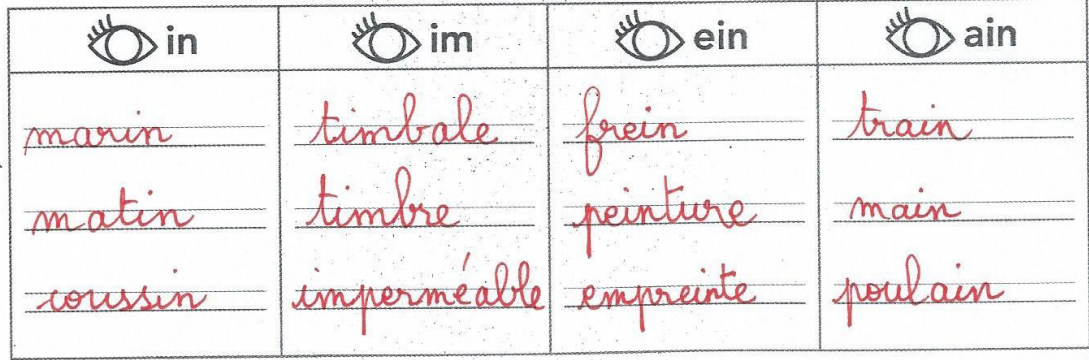 in im ein ain
marin timbale frein train
matin timbre peinture main
coussin imperméable empreinte poulain